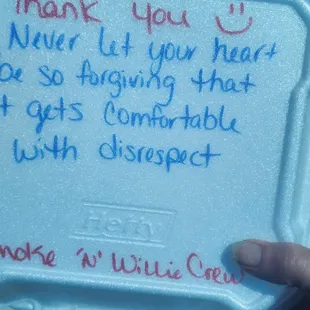 Thank you :)
Never let your heart
be so forgiving that
it gets comfortable
with disrespect
Hefty
Smoke 'N' Willie Crew